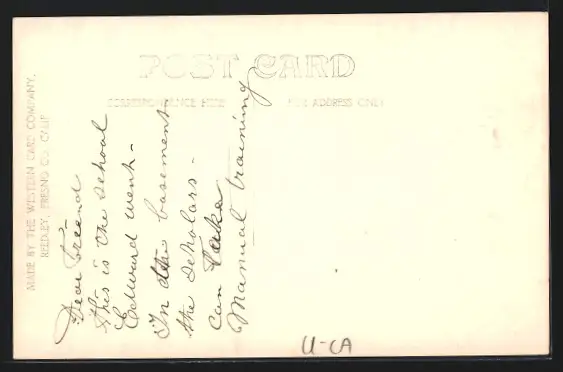 POST CARD
CORRESPONDENCE HERE
FOR ADDRESS ONLY
MADE BY THE WESTERN CARD COMPANY,
REEDLEY, FRESNO CO. CALIF.
Dear Freend
This is the school
Edward went -
In the basement
the scholars -
can take
Manual training
U-CA